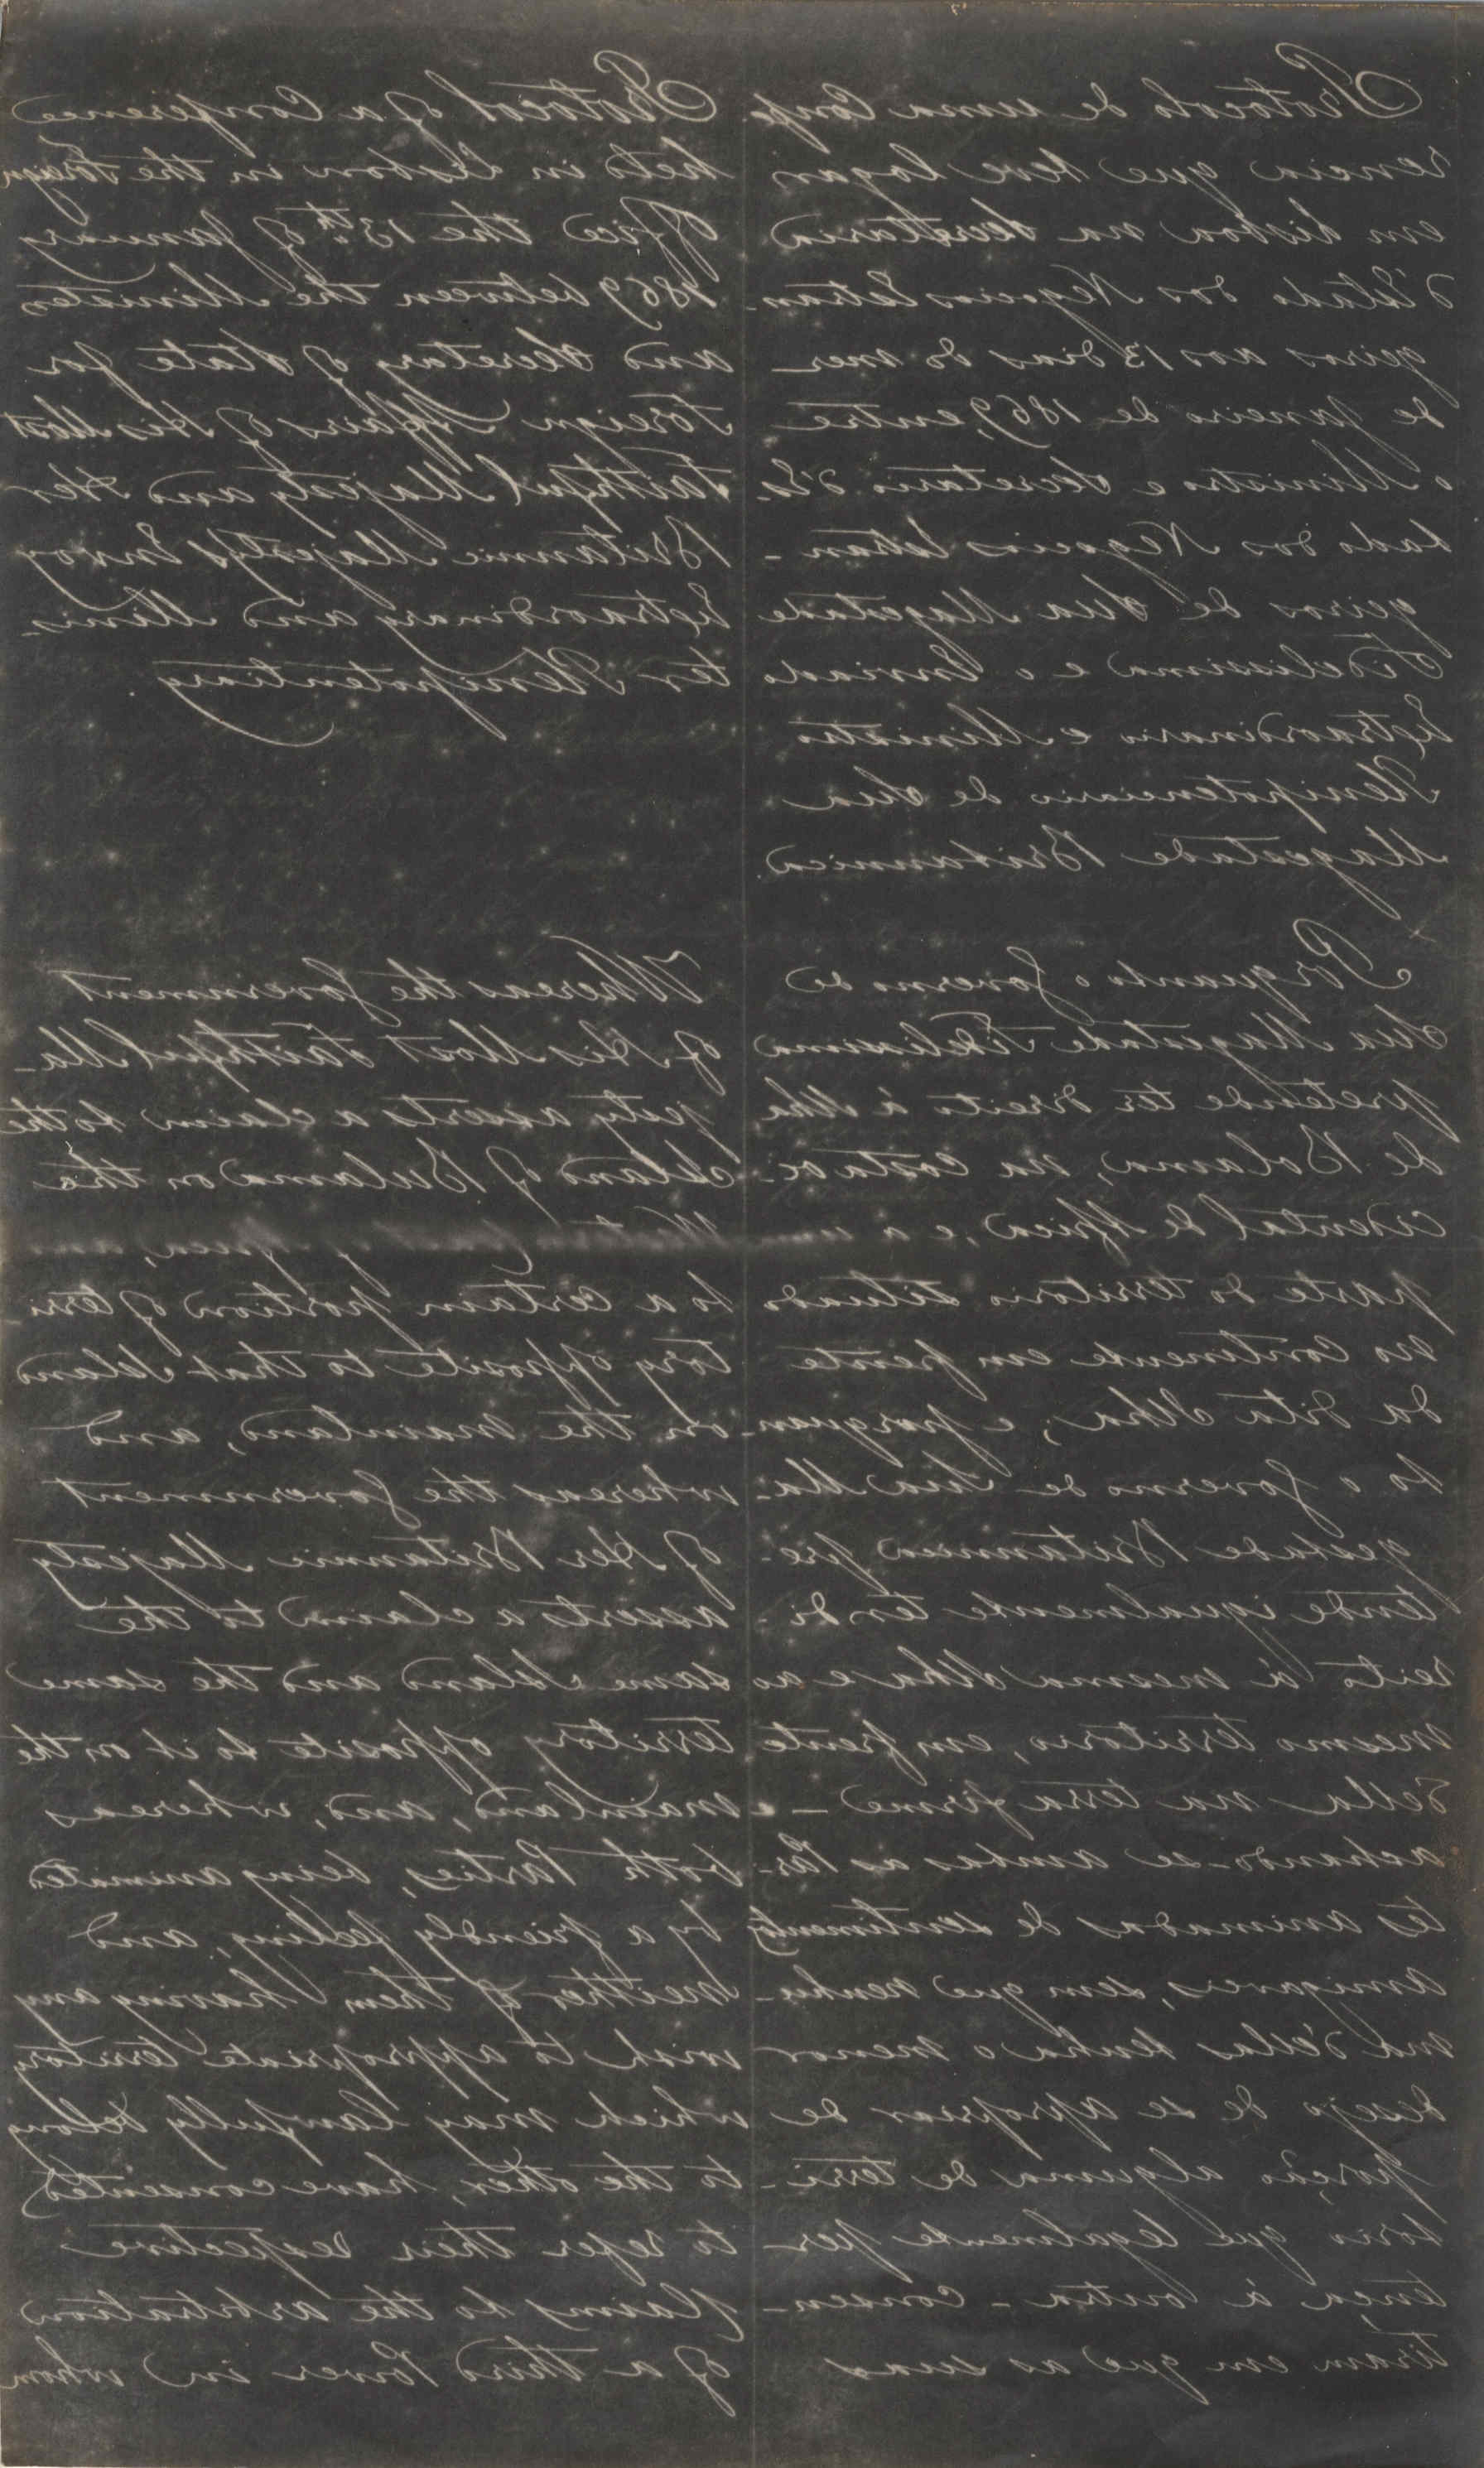 Protocolo de uma Confe
rencia que teve logar
em Lisboa na Secretaria
d'Estado dos Negocios Estran-
geiros aos 13 dias do mez
de Janeiro de 1869, entre
o Ministro e Secretario d'Es-
tado dos Negocios Estran-
geiros de Sua Magestade
Fidelissima e o Enviado
Extraordinario e Ministro
Plenipotenciario de Sua
Magestade Britannica
Porquanto o Governo de
Sua Magestade Fidelissima
pretende ter direito á Ilha
de Bolama, na costa oc-
cidental de Africa, e a
parte do territorio situado
no continente em frente
da dita Ilha, e porquan-
to o Governo de Sua Ma-
gestade Britannica pre-
tende igualmente ter di-
reito á mesma Ilha e ao
mesmo territorio, em frente
della na terra firme - e
achando-se ambas as Par-
tes animadas de sentimentos
amigaveis, sem que nenhu-
ma d'ellas tenha o menor
desejo de se apropriar de
porção alguma de terri-
torio que legalmente per-
tença á outra - Consen-
tiram em que as suas
Protocol of a Conference
held in Lisbon in the Foreign
Office the 13th of January
1869 between the Minister
and Secretary of State for
Foreign Affairs of His Most
Faithful Majesty and Her
Britannic Majesty's Envoy
Extraordinary and Minis-
ter Plenipotentiary
Whereas the Government
of His Most Faithful Ma-
jesty asserts a claim to the
Island of Bulama on the
to a certain portion of terri
tory opposite to that Island
on the mainland, and
whereas the Government
of Her Britannic Majesty
asserts a claim to the
same Island and the same
territory opposite to it on the
mainland, and, whereas
both Parties, being animated
by a friendly feeling, and
neither of them having any
wish to appropriate territory
which may lawfully belong
to the other, have consented
to refer their respective
claims to the arbitration
of a third Power in whom